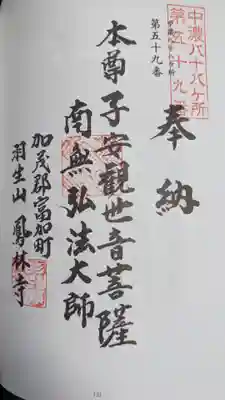 中濃八十八ヶ所
第五十九番
第五十九番
奉納
本尊子安觀世音菩薩
南無弘法大師
加茂郡富加町
羽生山 鳳林寺